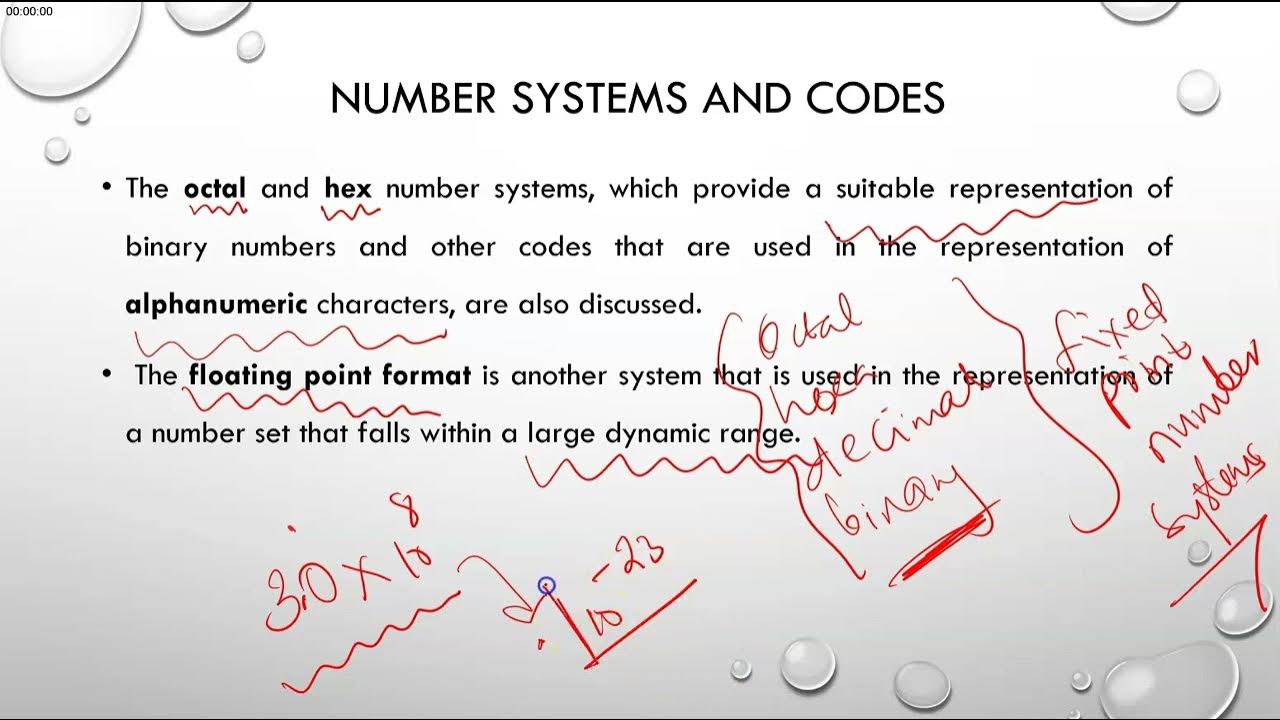 00:00:00
NUMBER SYSTEMS AND CODES
• The octal and hex number systems, which provide a suitable representation of
binary numbers and other codes that are used in the representation of
alphanumeric characters, are also discussed.
• The floating point format is another system that is used in the representation of
a number set that falls within a large dynamic range.
octal
hexa
decimal
binary
fixed
point
number
systems
3.0 × 10 8
10 -23